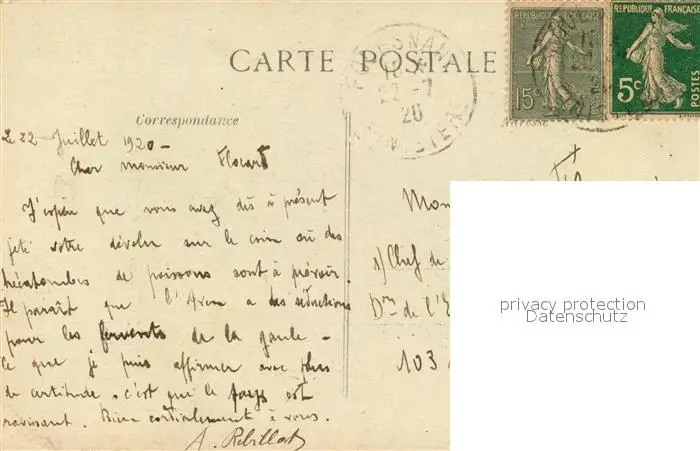 CARTE POSTALE
REPUBLIQUE FRANÇAISE
15c
REPUBLIQUE FRANÇAISE
5c
POSTES
22 -7
20
FINISTERE
Correspondance
Adresse
Le 22 Juillet 1920 -
Cher monsieur Flocard
J'espère que vous avez dès à présent
jeté votre dévolu sur le coin où des
hécatombes de poissons sont à prévoir
Il paraît que l'Aven a des séductions
pour les fervents de la gaule -
Ce que je puis affirmer avec plus
de certitude, c'est que le pays est
ravissant. Bien cordialement à vous.
A. Rebillat
Mon
1) Chef de
Don de l'E
103
privacy protection
Datenschutz